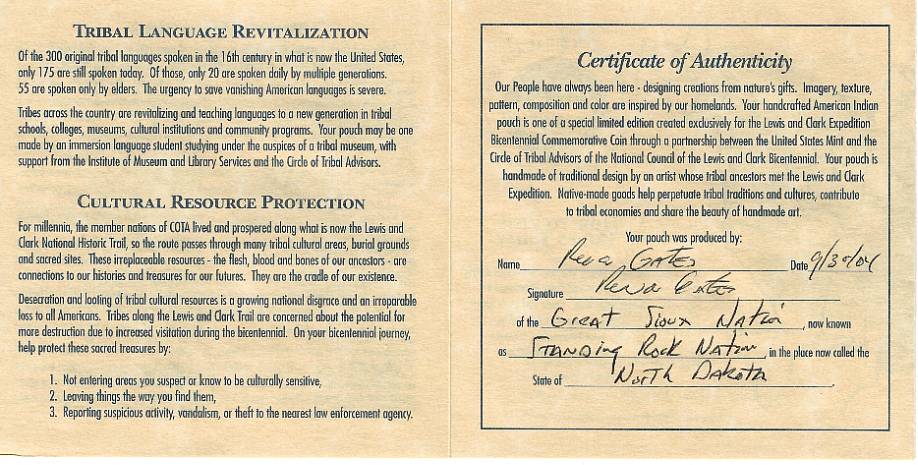 TRIBAL LANGUAGE REVITALIZATION
Of the 300 original tribal languages spoken in the 16th century in what is now the United States,
only 175 are still spoken today. Of those, only 20 are spoken daily by multiple generations.
55 are spoken only by elders. The urgency to save vanishing American languages is severe.
Tribes across the country are revitalizing and teaching languages to a new generation in tribal
schools, colleges, museums, cultural institutions and community programs. Your pouch may be one
made by an immersion language student studying under the auspices of a tribal museum, with
support from the Institute of Museum and Library Services and the Circle of Tribal Advisors.
CULTURAL RESOURCE PROTECTION
For millennia, the member nations of COTA lived and prospered along what is now the Lewis and
Clark National Historic Trail, so the route passes through many tribal cultural areas, burial grounds
and sacred sites. These irreplaceable resources - the flesh, blood and bones of our ancestors - are
connections to our histories and treasures for our futures. They are the cradle of our existence.
Desecration and looting of tribal cultural resources is a growing national disgrace and an irreparable
loss to all Americans. Tribes along the Lewis and Clark Trail are concerned about the potential for
more destruction due to increased visitation during the bicentennial. On your bicentennial journey,
help protect these sacred treasures by:
1. Not entering areas you suspect or know to be culturally sensitive,
2. Leaving things the way you find them,
3. Reporting suspicious activity, vandalism, or theft to the nearest law enforcement agency.
Certificate of Authenticity
Our People have always been here - designing creations from nature's gifts. Imagery, texture,
pattern, composition and color are inspired by our homelands. Your handcrafted American Indian
pouch is one of a special limited edition created exclusively for the Lewis and Clark Expedition
Bicentennial Commemorative Coin through a partnership between the United States Mint and the
Circle of Tribal Advisors of the National Council of the Lewis and Clark Bicentennial. Your pouch is
handmade of traditional design by an artist whose tribal ancestors met the Lewis and Clark
Expedition. Native-made goods help perpetuate tribal traditions and cultures, contribute
to tribal economies and share the beauty of handmade art.
Your pouch was produced by:
Name Reva Gates Date 9/30/04
Signature Reva Gates
of the Great Sioux Nation, now known
as Standing Rock Nation, in the place now called the
State of North Dakota.